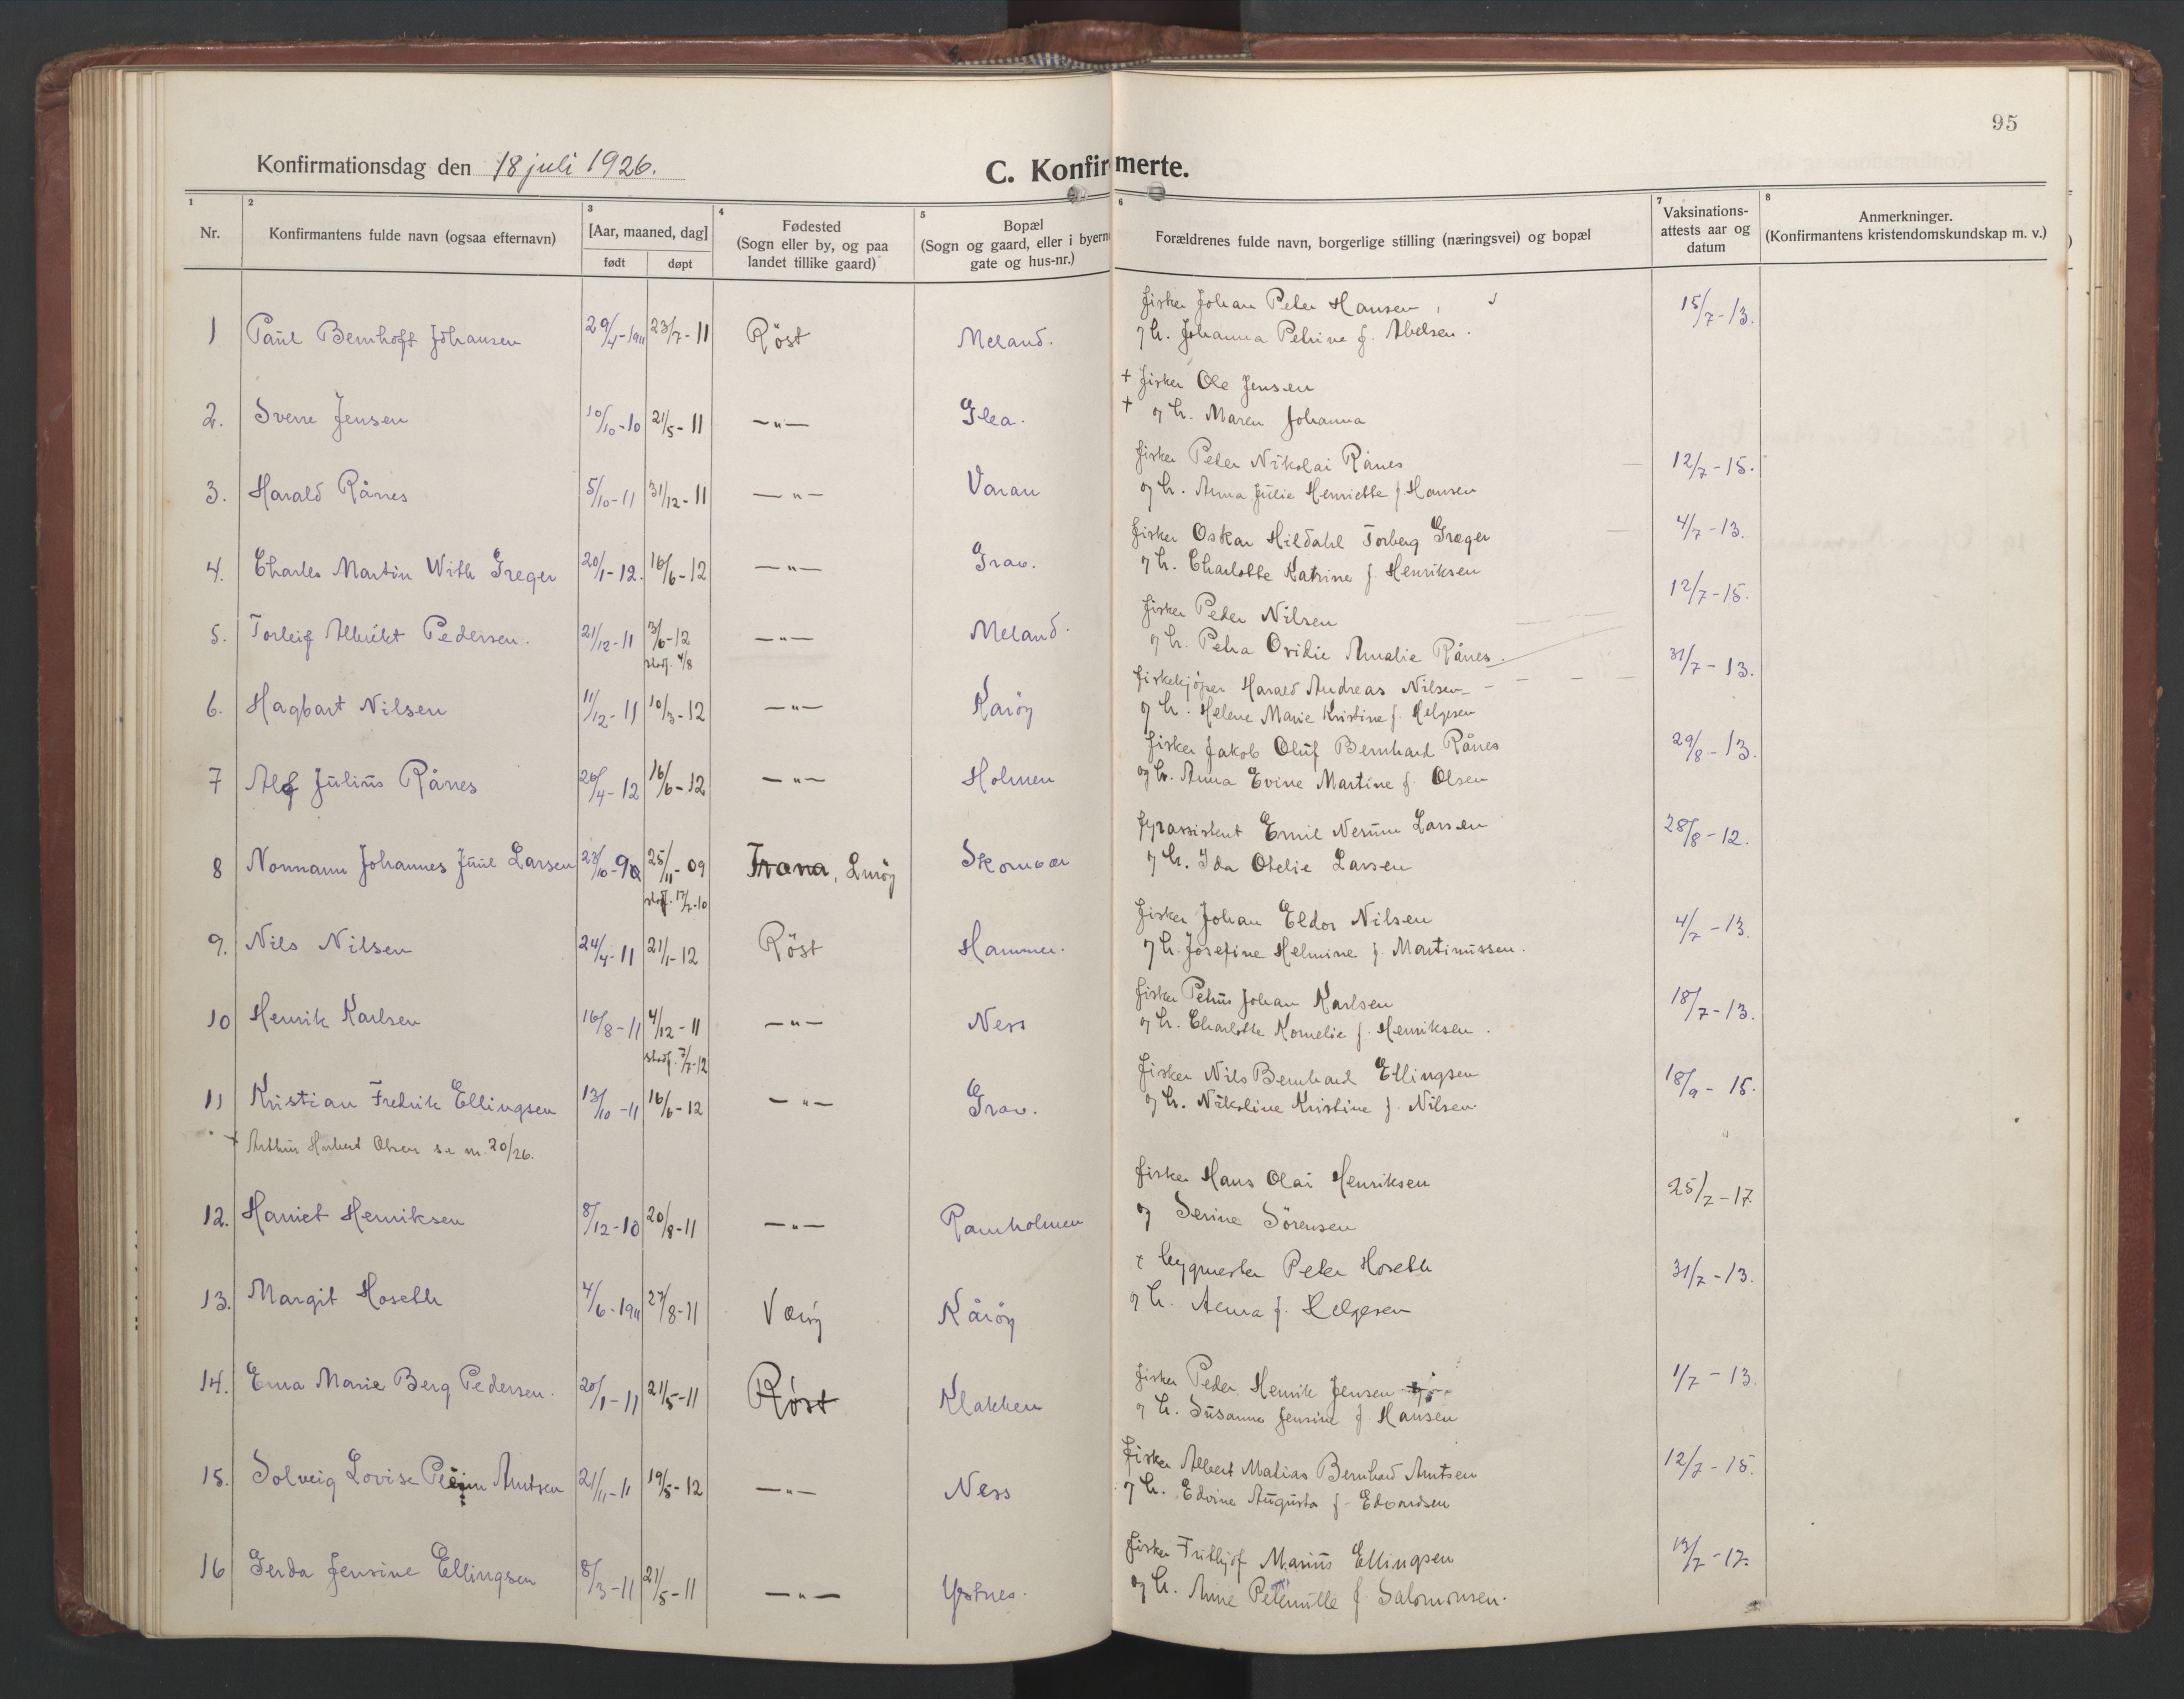 95
Konfirmationsdag den 18 juli 1926.
C. Konfirmerte.
1 2 3 4 5 6 7 8
Nr.
Konfirmantens fulde navn (ogsaa efternavn)
[Aar, maaned, dag]
født døpt
Fødested
(Sogn eller by, og paa
landet tillike gaard)
Bopæl
(Sogn og gaard, eller i byerne
gate og hus-nr.)
Forældrenes fulde navn, borgerlige stilling (næringsvei) og bopæl
Vaksinations-
attests aar og
datum
Anmerkninger.
(Konfirmantens kristendomskundskap m. v.)
1 Paul Bernhoft Johansen 29/4-1911 23/7-11 Röst Meland.
fisker Johan Peter Hansen 15/7-13.
og h. Johanna Petrine f. Abelsen.
2. Sverre Jensen 10/10-10 21/5-11 -"- Glea.
+ fisker Ole Jensen
+ og h. Maren Johanna
3. Harald Rånes 5/10-11 31/12-11 -"- Varau
fisker Peder Nikolai Rånes 12/7-15.
og h. Anna Julie Henriette f. Hansen
4. Charles Martin With Greger 20/1-12. 16/6-12 -"- Grav.
fisker Oskar Hildahl Torberg Greger 4/7-13.
og h. Charlotte Katrine f. Henriksen
5. Torleif Albrikt Pedersen. 21/12-11 3/6-12 -"- Meland.
stadf. 4/8
fisker Peder Nilsen 12/7-15.
og h. Petra Ovidie Amalie Rånes.
6. Hagbart Nilsen 11/12-11 10/3-12 -"- Karöy
fiskekjøper Harald Andreas Nilsen 31/7-13.
og h. Helene Marie Kristine f. Helgesen
7 Alf Julius Rånes 26/4-12 16/6-12 -"- Holmen
fisker Jakob Oluf Bernhard Rånes 29/8-13.
og h. Anna Evine Martine f. Olsen
8 Normann Johannes Juul Larsen 23/10-9 25/11-09 Træna, Luröy Skomvær
stadf. 17/7-10
fyrassistent Emil Nerum Larsen 28/8-12.
og h. Ida Otelie Larsen
9. Nils Nilsen 24/4-11 21/1-12 Röst Hammer.
fisker Johan Eldor Nilsen 4/7-13.
og h. Josefine Helmine f. Martinussen.
10 Henrik Karlsen 16/8-11 4/12-11 -"- Ness
stadf. 7/7-12
fisker Petrus Johan Karlsen 18/7-13.
og h. Charlotte Kornelie f. Henriksen.
11 Kristian Fredrik Ellingsen 13/10-11 16/6-12 -"- Grav.
fisker Nils Bernhard Ellingsen 18/9-15.
og h. Nikoline Kristine f. Nilsen.
+ Arthur Herbert Olsen se nr. 20/26.
12. Harriet Henriksen 8/12-10 20/8-11 -"- Ramholmen
fisker Hans Olai Henriksen 25/7-17.
og Serine Sörensen
13. Margit Hoseth 4/6-1911 27/8-11 Værøy Kåröy
+ bygmester Peter Hoseth 31/7-13.
og h. Anna f. Helgesen
14. Erna Marie Berg Pedersen. 20/1-11 21/5-11 Røst Klakken
fisker Peder Henrik Jensen 1/7-13.
og h. Susanna Jensine f. Hansen
15. Solveig Lovise Arntsen 21/11-11 19/5-12 -"- Ness
fisker Albert Matias Bernhard Arntsen 12/7-15.
og h. Edvine Augusta f. Edvardsen
16 Gerda Jensine Ellingsen 8/3-11 21/5-11 -"- Ystnes.
fisker Frithjof Marius Ellingsen 13/7-17.
og h. Anne Pernille f. Salomonsen.